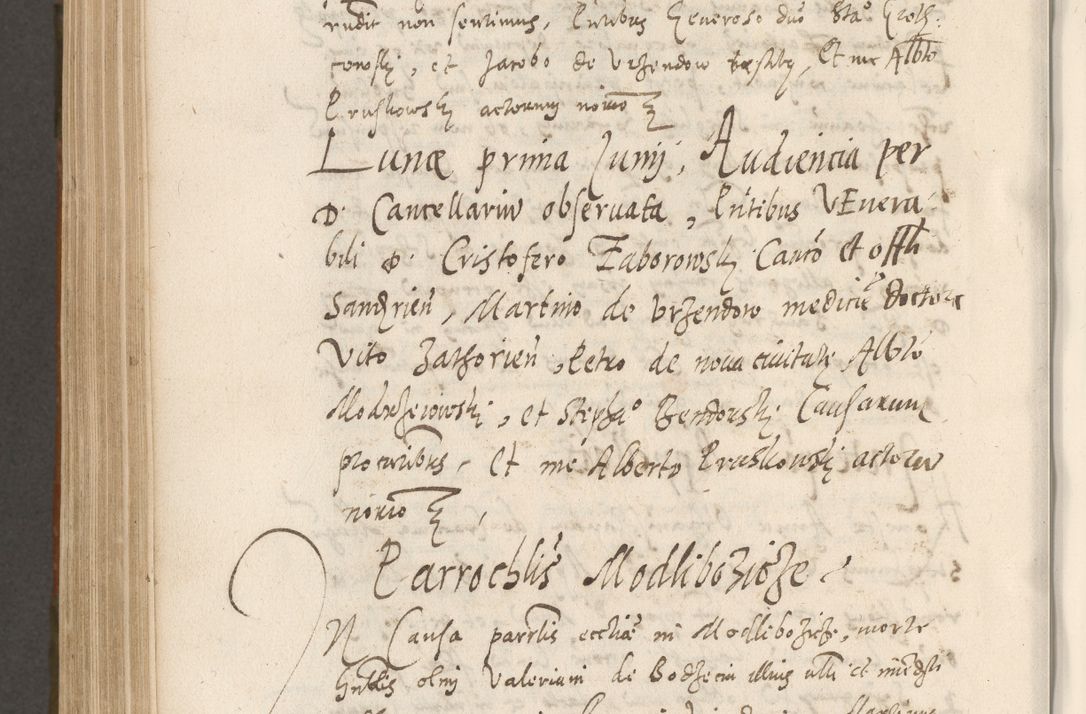 rudit non sentimus, Pntibus Generoso dno Sta° Groth
cowski, et Jacobo de Urzendow testibus, Et me Albto
Pruskowski actorum notrio
Lunæ prima Junij, Audiencia per
D. Cancellariu observata, Pntibus VEnera
bili D. Cristofero Zaborowski Canco et offli
Sandrien, Martino de Urzendow medicie doctore
Vito Zathorien, Petro de nova civitate Albto
Modrzewowski, et Stepha° Bendowski Causarum
procuribus, Et me Alberto Pruskowski actoru
notrio
Parrochlis Modlibozicze
IN Causa parrlis eccliæ in Modlibozicze, morte
hntlis olim Valeriani de Bodzecin illius ulti et immedti